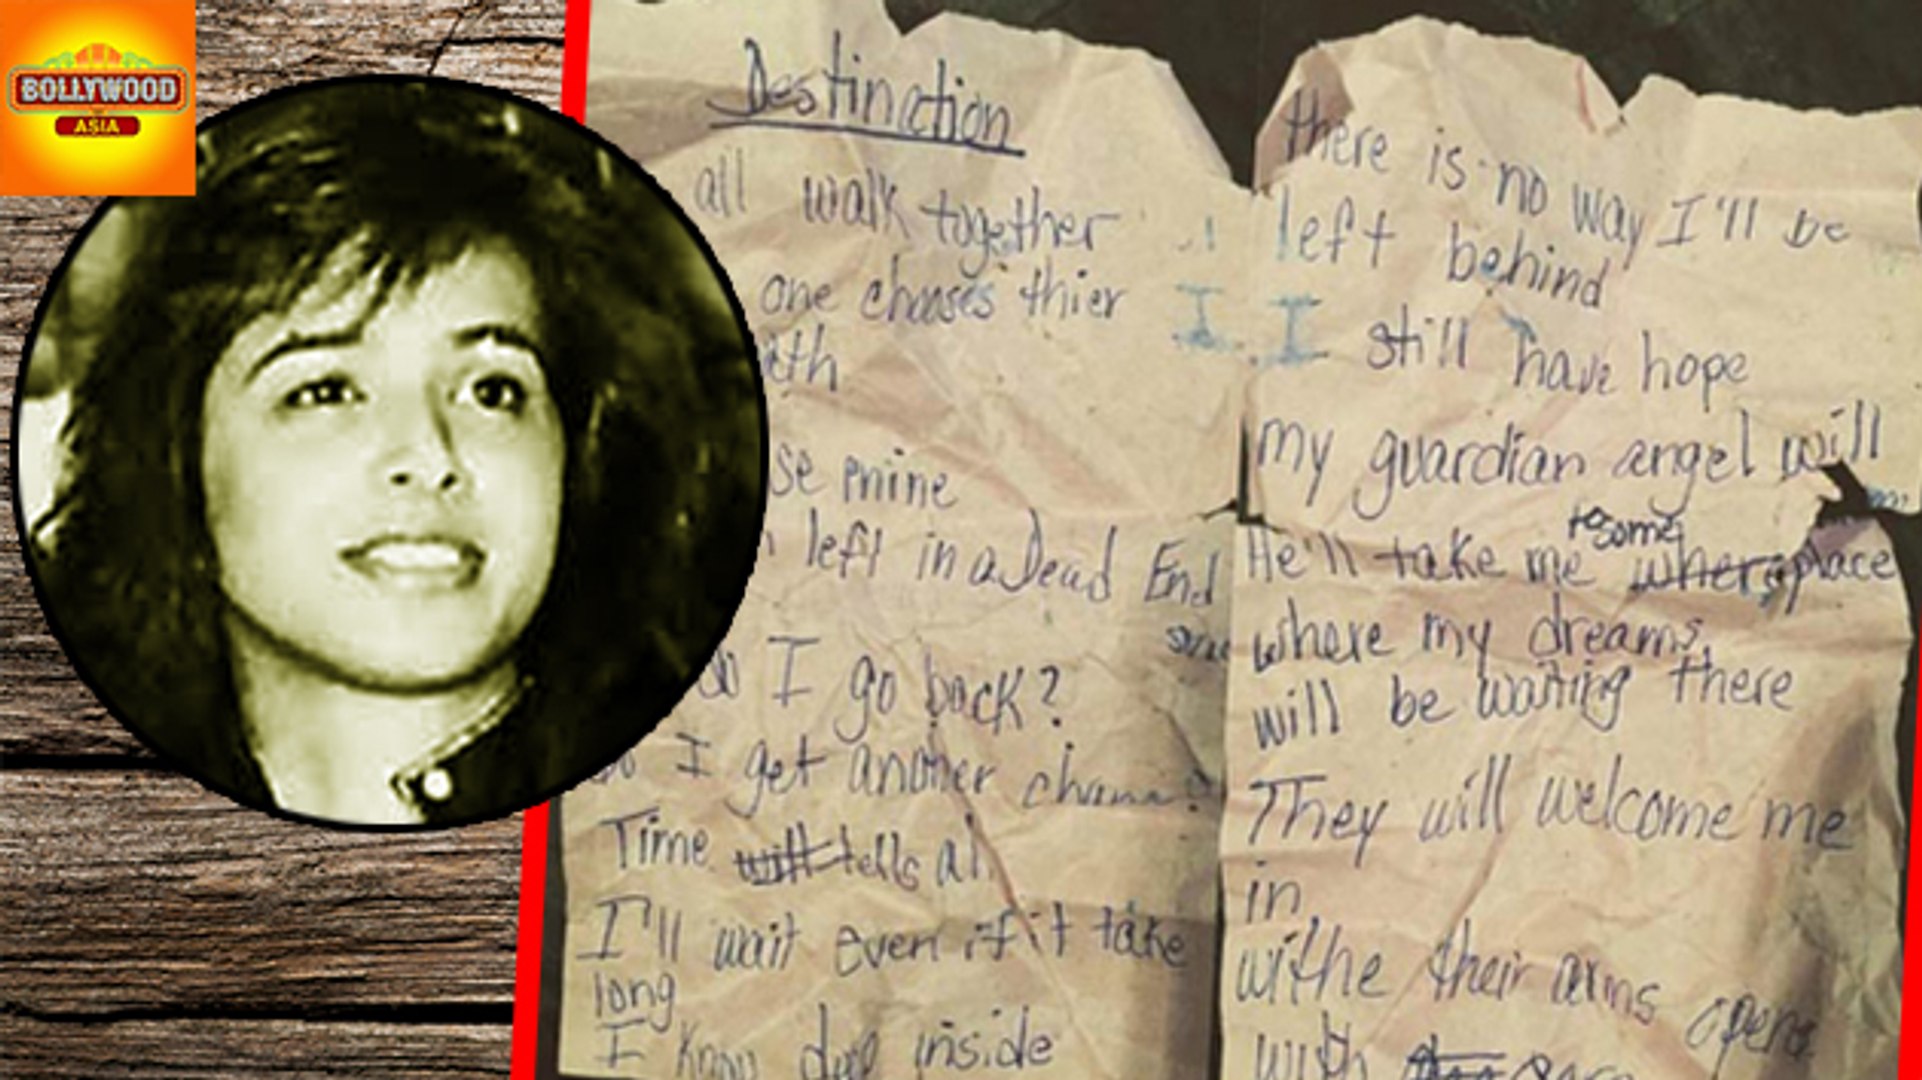 BOLLYWOOD
ASIA
Destination
all walk together
one chooses thier
ath
se mine
left in a Dead End
I go back?
I get another
Time will tells al
I'll wait even if it take
long
I know inside
there is no way I'll be
left behind
I I still have hope
my guardian angel will
to some
He'll take me where place
where my dreams
will be waiting there
They will welcome me
in
withe their arms opens
with